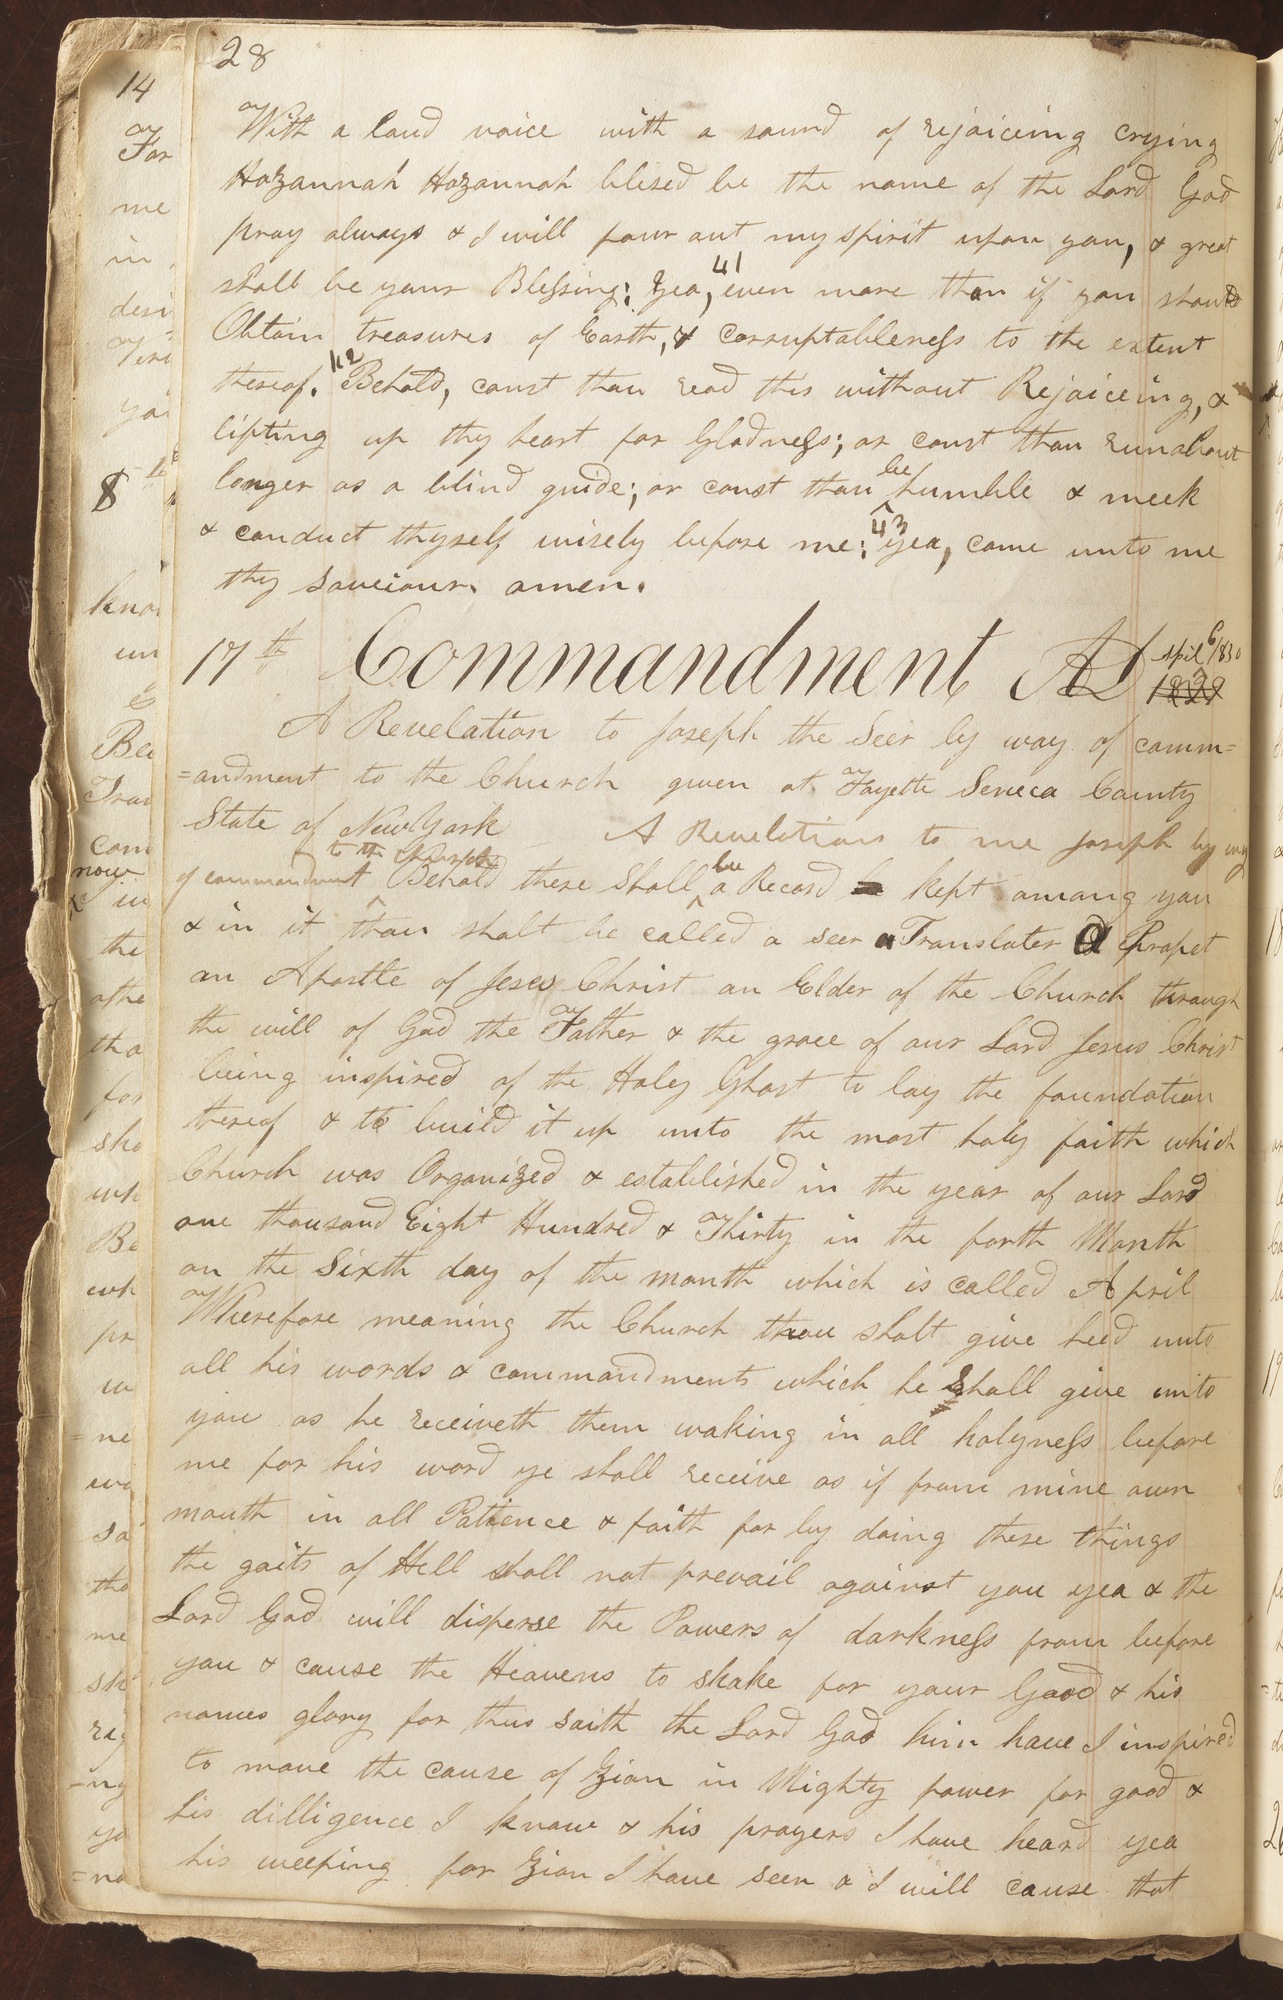 28
With a loud voice with a sound of rejoiceing crying
Hozannah Hozannah blesed be the name of the Lord God
pray always & I will pour out my spirit upon you, & great
shall be your Blessing: 41 yea, even more than if you should
Obtain treasures of Earth, & corruptableness to the extent
thereof. 42 Behold, canst thou read this without Rejoiceing, &
lifting up thy heart for Gladness; or canst thou run about
longer as a blind guide; or canst thou be humble & meek
& conduct thyself wisely before me; 43 yea, come unto me
thy saveiour. amen.
17th Commandment AD April 6 1830
1829
A Revelation to Joseph the Seer by way of comm=
=andment to the Church given at Fayette Seneca County
State of New York A Revelation to me Joseph by way
of commandment to the Church Behold there shall be a Record kept among you
& in it thou shalt be called a seer a Translater a Propet
an Apostle of Jesus Christ an Elder of the Church through
the will of God the Father & the grace of our Lord Jesus Christ
being inspired of the Holy Ghost to lay the foundation
thereof & to build it up unto the most holy faith which
Church was Organized & established in the year of our Lord
one thousand Eight Hundred & Thirty in the forth Month
on the Sixth day of the month which is called April
Wherefore meaning the Church thou shalt give heed unto
all his words & commandments which he shall give unto
you as he receiveth them waking in all holyness before
me for his word ye shall receive as if from mine own
mouth in all Patience & faith for by doing these things
the gaits of Hell shall not prevail against you yea & the
Lord God will disperse the Powers of darkness from before
you & cause the Heavens to shake for your Good & his
names glory for thus saith the Lord God him have I inspired
to move the cause of Zion in Mighty power for good &
his dilligence I know & his prayers I have heard yea
his weeping for Zion I have seen & I will cause that
14
For
me
in
desi
8
know
un
Be
now
in
the
othe
tho
for
sho
wh
Be
wh
pr
ne
tho
me
=ny
=no